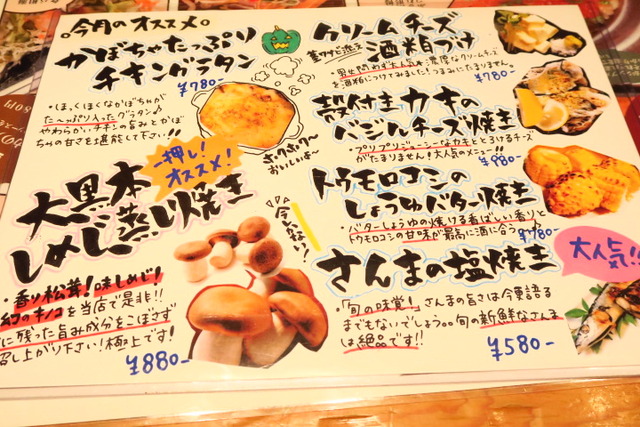 。今月のオススメ。
かぼちゃたっぷり
チキングラタン
¥780-
・ほくほくなかぼちゃが
た〜っぷり入ったグラタン♪
やわらかいチキンの旨みとかぼ
ちゃの甘さを堪能して下さい!!
ホクホク〜
おいしいよ〜
一押し!
オススメ!
大黒本
しめじ蒸し焼き
今が旬
・香り松茸!味しめじ!
幻のキノコを当店で是非!!
に残った旨み成分をこぼさず
召し上がり下さい!極上です!
¥880-
クリームチーズ
酒粕づけ
・男女問わず大人気な濃厚なクリームチーズ
を酒粕につけてみました!つまみにたまりません。
¥780-
殻付きカキの
バジルチーズ焼き
・プリプリジューシーなカキととろけるチーズ
がたまりません!大人気のメニュー!!
¥980-
トウモロコシの
しょうゆバター焼き
・バターしょうゆの焼ける香ばしい香りと
トウモロコシの甘味が最高に酒に合う
¥780-
さんまの塩焼き
大人気!!
・「旬の味覚!」さんまの旨さは今更語る
までもないでしょう。。旬の新鮮なさんま
は絶品です!!
¥580-